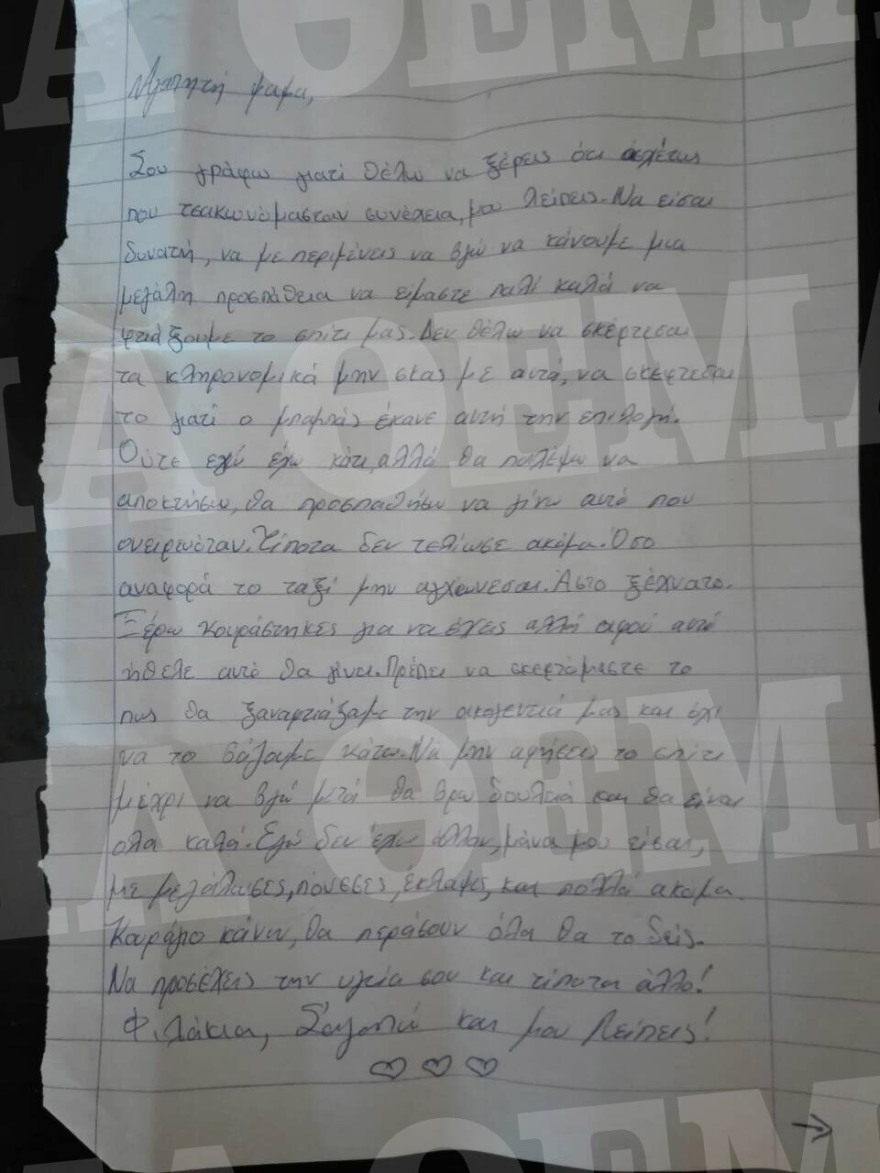 Αγαπητή μαμα,
Σου γράφω γιατί θέλω να ξέρεις ότι
που τσακωνόμασταν συνέχεια, μου λείπεις. Να είσαι
δυνατή, να με περιμένεις να βγώ να κάνουμε μια
μεγάλη προσπάθεια να είμαστε παλί καλά να
φτιάξουμε το σπίτι μας. Δεν θέλω να σκέφτεσαι
τα κληρονομικά μην σκας με αυτά, να σκέφτεσαι
το γιατί ο μπαμπάς έκανε αυτή την επιλογή.
Ούτε εγώ έχω κάτι, αλλά θα παλέψω να
αποκτήσω, θα προσπαθήσω να γίνω αυτό που
ονειρωόταν. Τίποτα δεν τελίωσε ακόμα. Όσο
αναφορά το ταξί μην αγχώνεσαι. Άστο ξέχνατο.
Ξέρω κουράστηκες για να έχεις αλλή αφού αυτό
ήθελε αυτό θα γίνει. Πρέπει να σκεφτόμαστε το
πως θα ξαναφτιάξουμε την οικογενειά μας και όχι
να το βάζουμε κάτω. Να μην αφήσεις το σπίτι
μέχρι να βγώ μετά θα βρω δουλειά και θα είναι
ολα καλά. Εγώ δεν έχω άλλον, μάνα μου είσαι,
με μεγάλωσες, πόνεσες, έκλαψες, και πολλά ακόμα.
Κουράγιο κάνω, θα περάσουν όλα θα το δείς.
Να προσέχεις την υγεία σου και τίποτα άλλο!
Φιλάκια, Σ'αγαπώ και μου λείπεις!
Α ΘΕΜΑ
Α ΘΕΜΑ
Α ΘΕΜΑ
Α ΘΕΜΑ